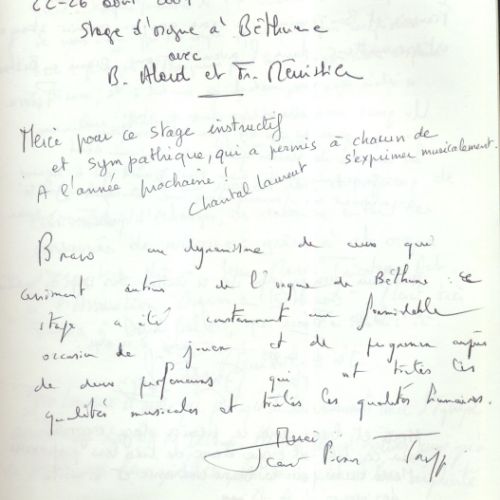 22-26 août
Stage d'orgue à Béthune
avec
B. Alard et Fr. Ménissier
Merci pour ce stage instructif
et sympathique, qui a permis à chacun de
s'exprimer musicalement.
A l'année prochaine !
Chantal Laurent
Bravo au dynamisme de ceux qui
animent autour de l'orgue de Béthune : ce
stage a été constamment une formidable
occasion de jouer et de progresser auprès
de deux professeurs qui ont toutes les
qualités musicales et toutes les qualités humaines.
Merci
Jean Pierre